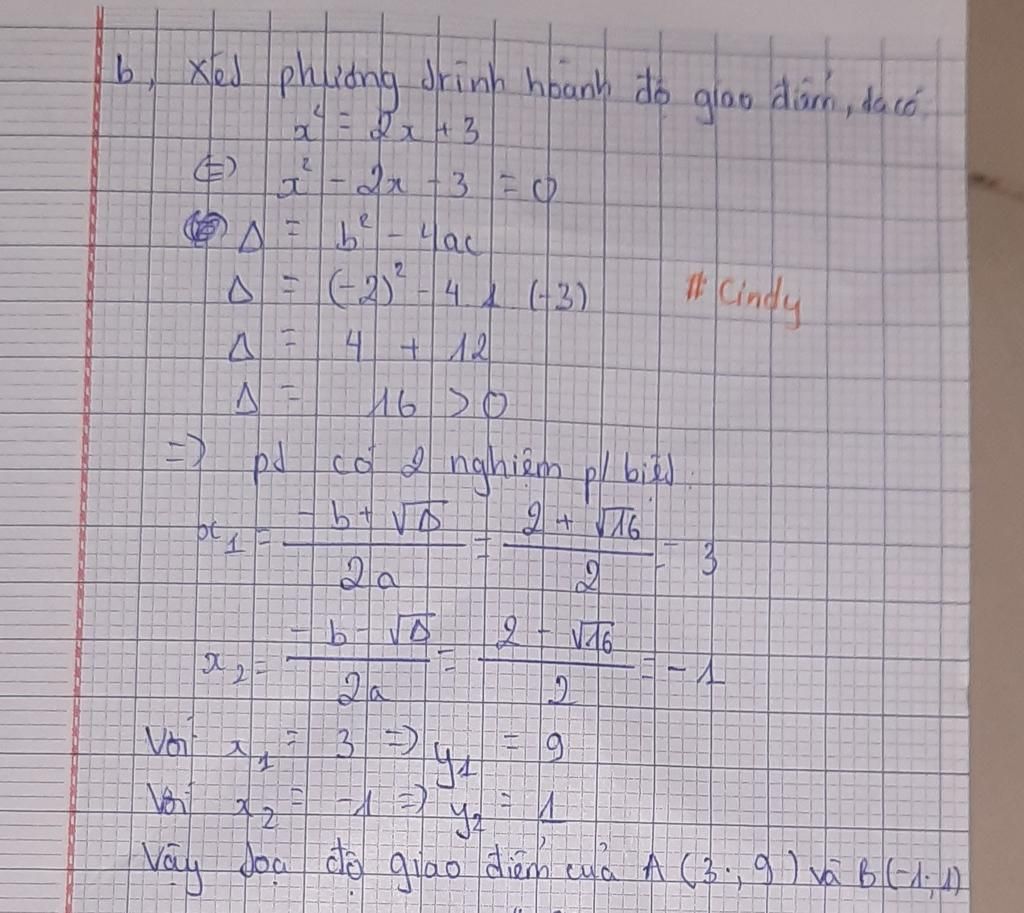 b, Xét phương trình hoành độ giao điểm, ta có
x² = 2x + 3
(=) x² - 2x - 3 = 0
Δ = b² - 4ac
Δ = (-2)² - 4 . 1 (-3) # Cindy
Δ = 4 + 12
Δ = 16 > 0
=> pt có 2 nghiệm p/ biệt.
x₁ = (-b + √Δ)/(2a) = (2 + √16)/2 = 3
x₂ = (-b - √Δ)/(2a) = (2 - √16)/2 = -1
Với x₁ = 3 => y₁ = 9
Với x₂ = -1 => y₂ = 1
Vậy toạ độ giao điểm của A (3 ; 9) và B (-1 ; 1)